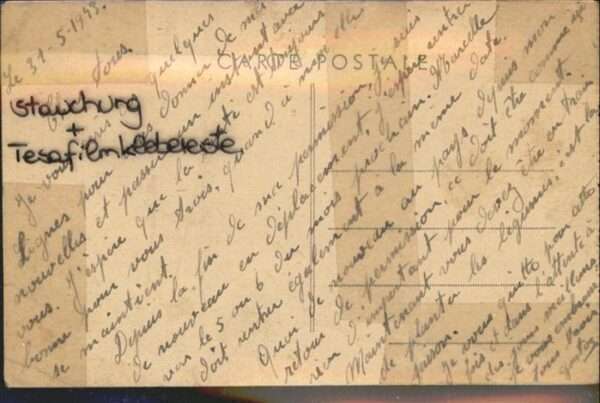 CARTE POSTALE
Stauchung
+
Tesafilmklebereste
Le 31-5-1943.
à vous tous.
Je vous écris quelques
lignes pour vous donner de mes
nouvelles et passer un instant avec
vous. J'espère que la santé est toujours
bonne pour vous trois, quand à moi elle
se maintient.
Depuis la fin de ma permission, je suis
de nouveau en déplacement, j'espère rentrer
vers le 5 ou 6 du mois prochain. Marcelle
doit rentrer également à la même date.
Quoi de nouveau au pays, depuis mon
retour de permission, ce doit être comme ici
rien d'important pour le moment.
Maintenant vous devez être en train
de planter les légumes, c'est la
saison.
Je vous quitte pour cette
fois et dans l'attente
vous